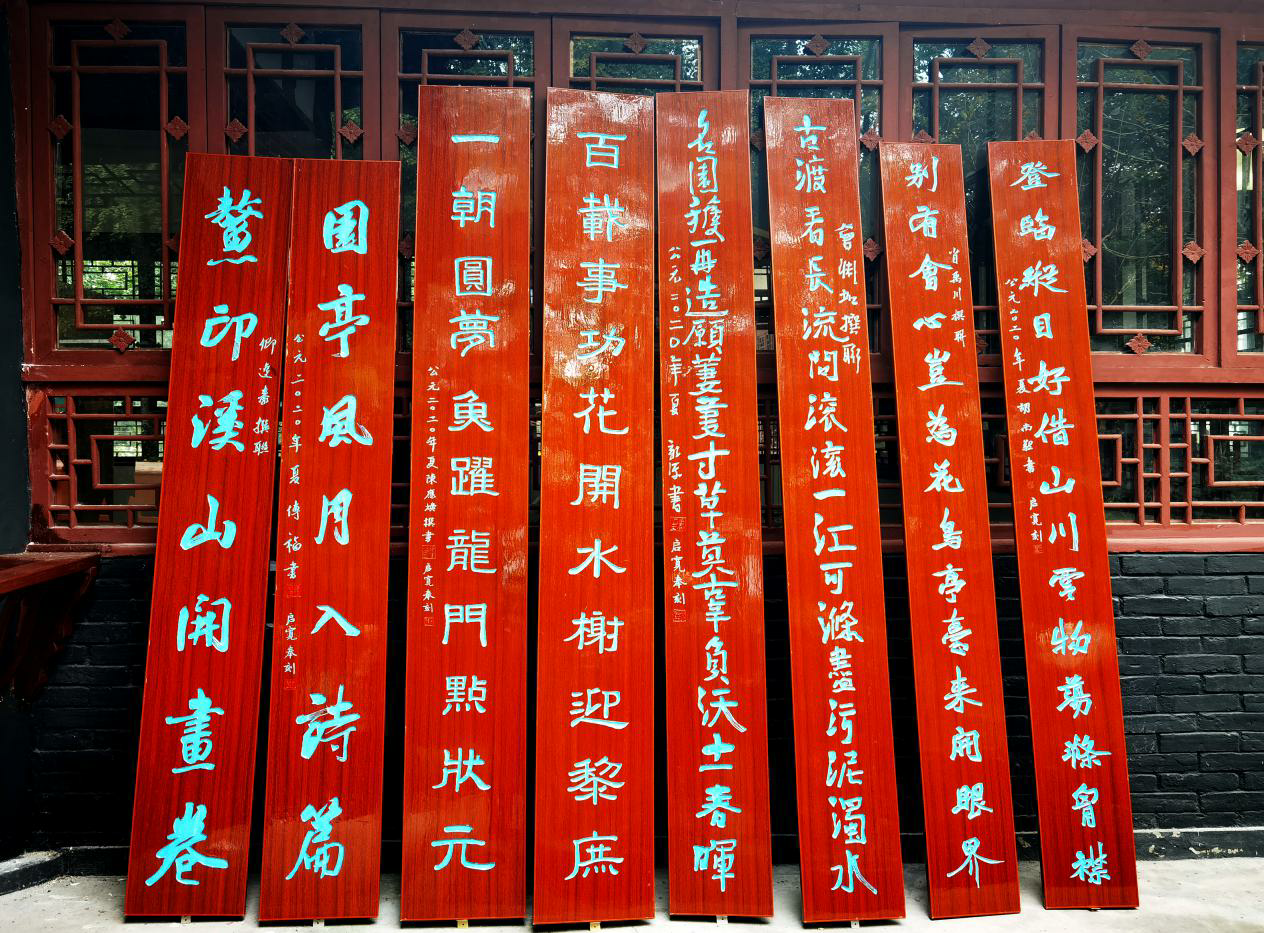 登臨縱目好借山川雲物蕩滌胷襟
公元二〇二〇年夏胡尚
書
启寬刻
肖禹川撰联
别有會心豈為花鳥亭臺来開眼界
撰聯
古渡看長流問滚滚一江可滌盡污泥濁水
名園獲再造願萋萋寸草莫辜負沃土春暉
公元二〇二〇年夏
書
启寬奉刻
百載事功花開水榭迎黎庶
一朝圓夢魚躍龍門點狀元
公元二〇二〇年夏陳應塘撰書
启寬奉刻
園亭風月入詩篇
公元二〇二〇年夏傅福書
启寬奉刻
撰聯
鰲印溪山開畫卷